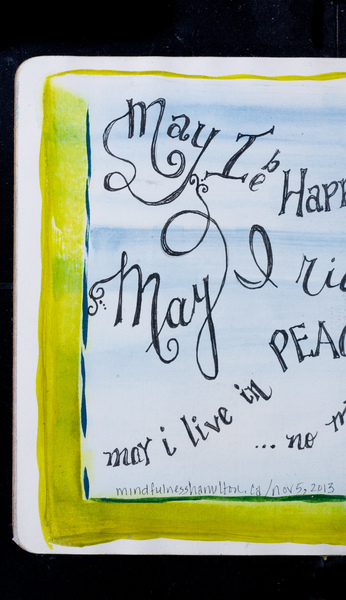 May I be Happ
May I ri
PEAC
may i live in
... no m
mindfulnesshamilton.ca/nov5,2013